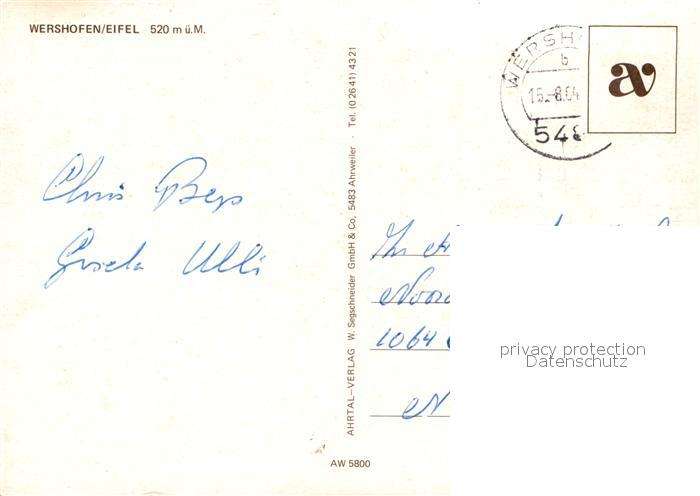 WERSHOFEN/EIFEL 520 m ü.M.
Chris Beys
Gisela Ulli
AHRTAL–VERLAG W. Segschneider GmbH & Co, 5483 Ahrweiler · Tel. (0 26 41) 43 21
AW 5800
WERSH
b
15.-8.84
548
av
Noord
1064
N
privacy protection
Datenschutz